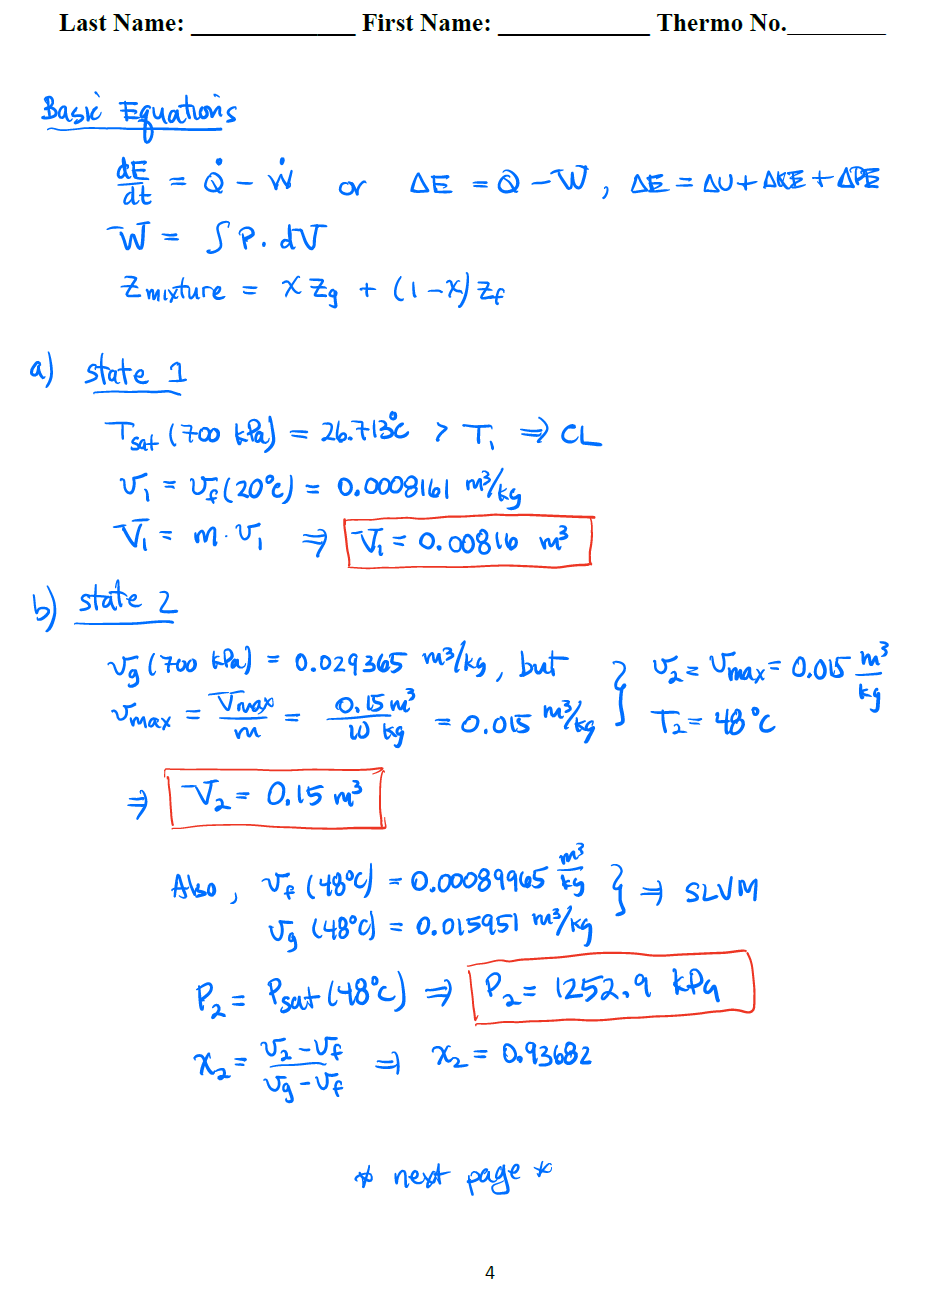 Last Name: _____________ First Name: ____________ Thermo No.________
Basic Equations
dE/dt = Q̇ - Ẇ or ΔE = Q - W, ΔE = ΔU + ΔKE + ΔPE
W = ∫ P. dV
Z mixture = x Zg + (1-x) Zf
a) state 1
Tsat (700 kPa) = 26.713°C > T₁ ⇒ CL
v₁ = vf (20°C) = 0.0008161 m³/kg
V₁ = m · v₁ ⇒ V₁ = 0.00816 m³
b) state 2
vg (700 kPa) = 0.029365 m³/kg, but } v₂ = vmax = 0.015 m³/kg
vmax = Vmax/m = 0.15 m³/10 kg = 0.015 m³/kg } T₂ = 48°C
⇒ V₂ = 0.15 m³
Also, vf (48°C) = 0.00089965 m³/kg } ⇒ SLVM
vg (48°C) = 0.015951 m³/kg
P₂ = Psat (48°C) ⇒ P₂ = 1252.9 kPa
x₂ = v₂ - vf / vg - vf ⇒ x₂ = 0.93682
* next page *
4